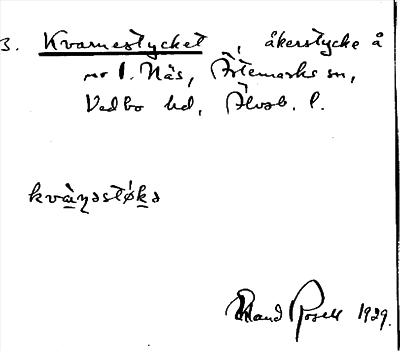 3. Kvarnestycket, åkerstycke å
nr 1. Näs, Ärtemarks sn,
Vedbo hd, Älvsb. l.
kvàɳəstǿkə
Rosell 1929.